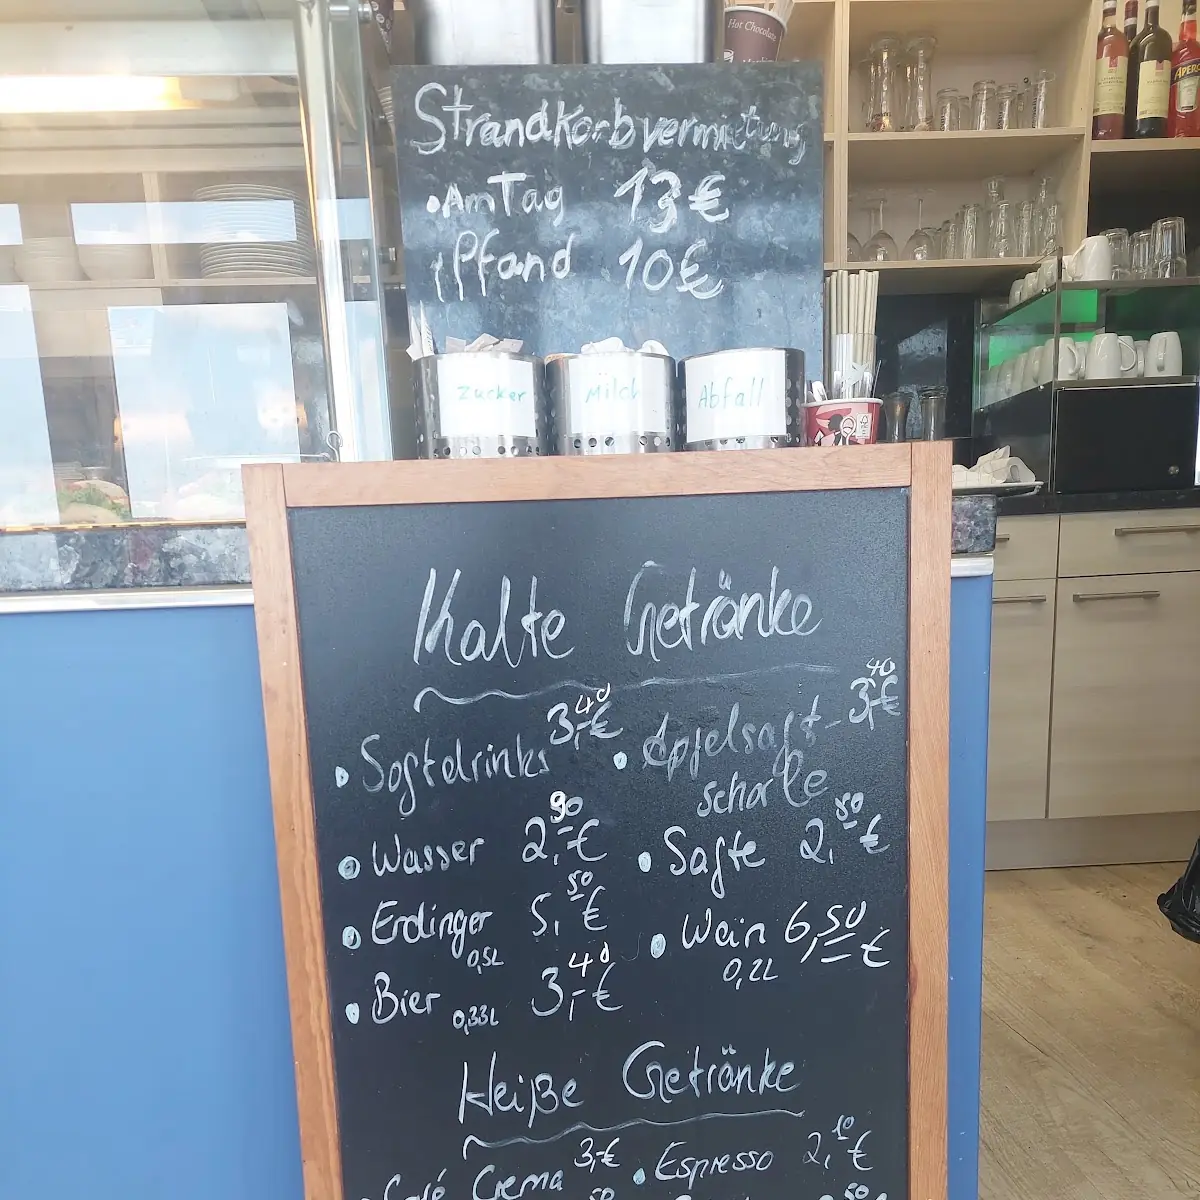 Hot Chocolate
APEROL
Strandkorbvermietung
• Am Tag 13€
• Pfand 10€
Zucker
Milch
Abfall
Kalte Getränke
• Softdrinks 3,40€
• Apfelsaft- 3,40€
schorle
• Wasser 2,90€
• Safte 2,80€
• Erdinger 5,50€
0,5L
• Wein 6,50€
0,2L
• Bier 0,33L 3,40€
Heiße Getränke
• Café Crema 3,-€
• Espresso 2,10€